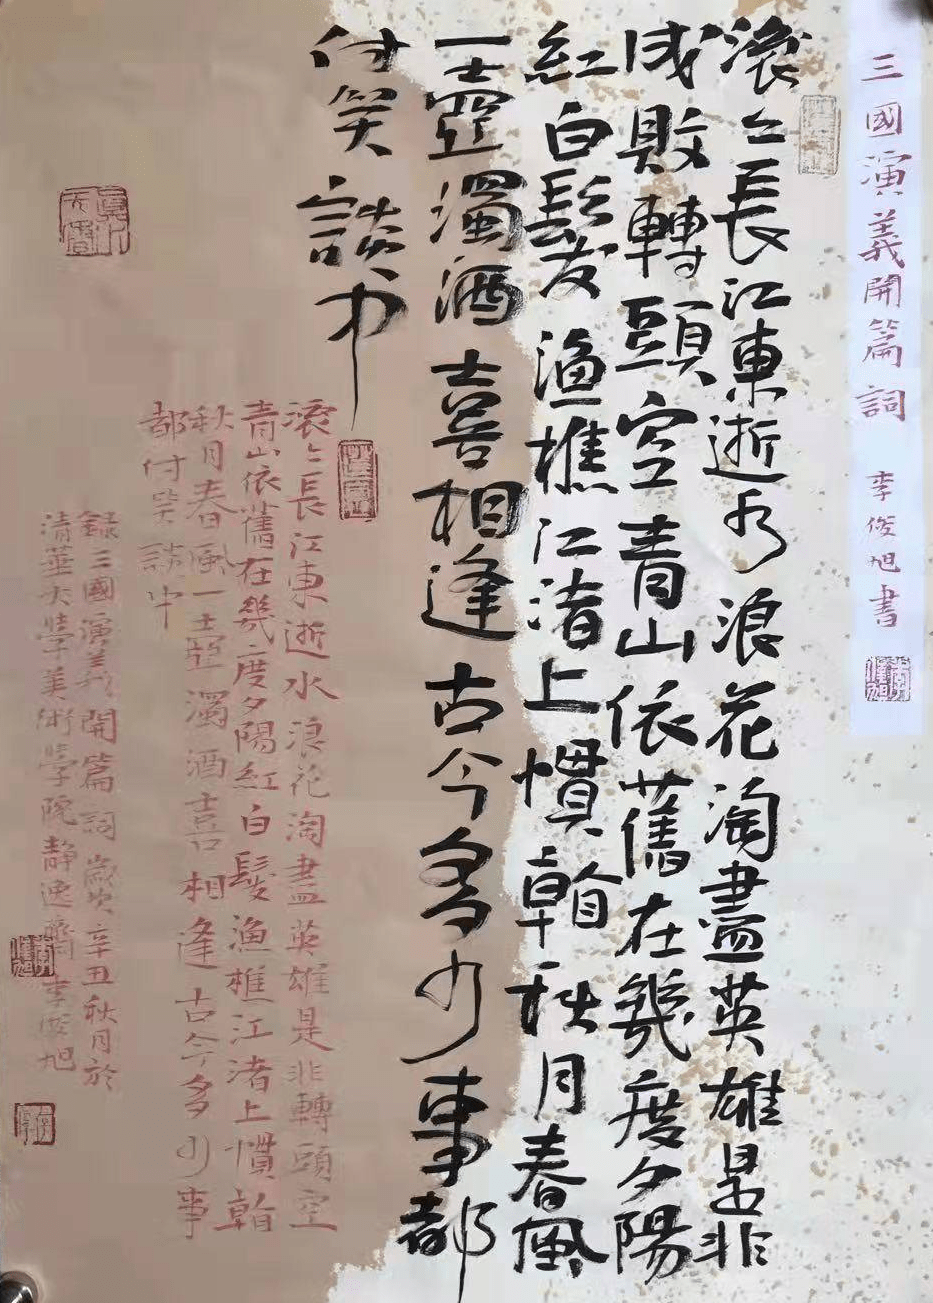 三國演義開篇詞 李俊旭書
滾〻長江東逝水浪花淘盡英雄是非
成敗轉頭空青山依舊在幾度夕陽
紅白髮渔樵江渚上慣看秋月春風
一壺濁酒喜相逢古今多少事都
付笑談中
滾〻長江東逝水浪花淘盡英雄是非轉頭空
青山依舊在幾度夕陽紅白髮渔樵江渚上慣看
秋月春風一壺濁酒喜相逢古今多少事
都付笑談中
錄三國演義開篇詞歲次辛丑秋月於
清華大學美術學院静逸齋李俊旭